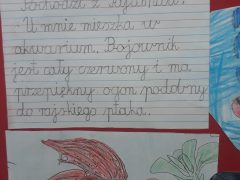 Pochodzi z Tajlandii.
U mnie mieszka w
akwarium. Bojownik
jest cały czerwony i ma
przepiękny ogon podobny
do rajskiego ptaka.